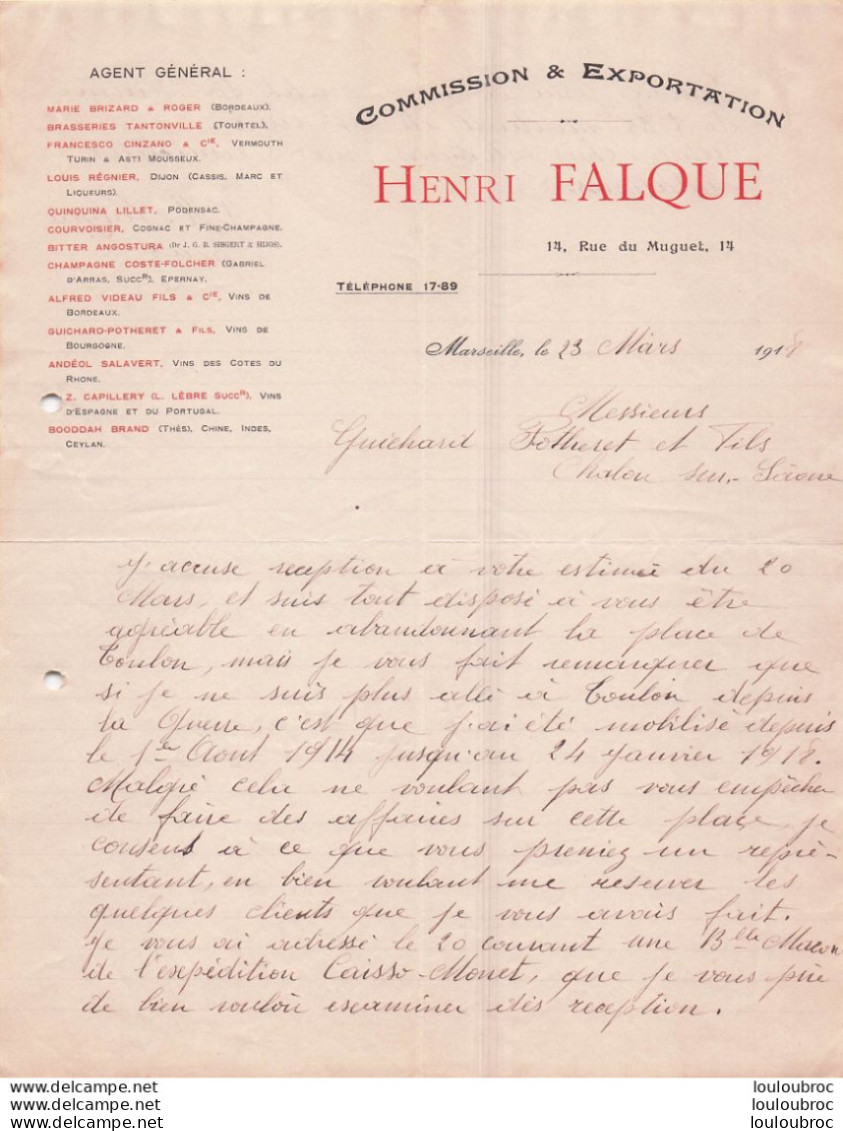 AGENT GÉNÉRAL :
MARIE BRIZARD & ROGER (BORDEAUX).
BRASSERIES TANTONVILLE (TOURTEL).
FRANCESCO CINZANO & CIE, VERMOUTH
TURIN & ASTI MOUSSEUX.
LOUIS RÉGNIER, DIJON (CASSIS, MARC ET
LIQUEURS).
QUINQUINA LILLET, PODENSAC.
COURVOISIER, COGNAC ET FINE-CHAMPAGNE.
BITTER ANGOSTURA (Dr J. G. B. SIEGERT & HIJOS).
CHAMPAGNE COSTE-FOLCHER (GABRIEL
D'ARRAS, SUCCR), EPERNAY.
ALFRED VIDEAU FILS & CIE, VINS DE
BORDEAUX.
GUICHARD-POTHERET & FILS, VINS DE
BOURGOGNE.
ANDÉOL SALAVERT, VINS DES COTES DU
RHONE.
Z. CAPILLERY (L. LÈBRE SUCCR), VINS
D'ESPAGNE ET DU PORTUGAL.
BOODDAH BRAND (THÉS), CHINE, INDES,
CEYLAN.
COMMISSION & EXPORTATION
HENRI FALQUE
14, Rue du Muguet, 14
TÉLÉPHONE 17-89
Marseille, le 23 Mars 1918
Messieurs
Guichard Potheret et Fils
Chalon sur-Saone
J'accuse reception à votre estimée du 20
Mars, et suis tout disposé à vous être
agréable en abandonnant la place de
Toulon, mais je vous fait remarquer que
si je ne suis plus allé à Toulon depuis
la Guerre, c'est que j'ai été mobilisé depuis
le 1er Aout 1914 jusqu'au 24 Janvier 1918.
Malgré cela ne voulant pas vous empêcher
de faire des affaires sur cette place, je
consens à ce que vous preniez un repré-
sentant, en bien voulant me reserver les
quelques clients que je vous avais fait.
Je vous ai adressé le 20 courant une Blle Macon
de l'expédition Caisso-Monet, que je vous prie
de bien vouloir examiner dès reception.
louloubroc
louloubroc
louloubroc
www.delcampe.net
www.delcampe.net
www.delcampe.net